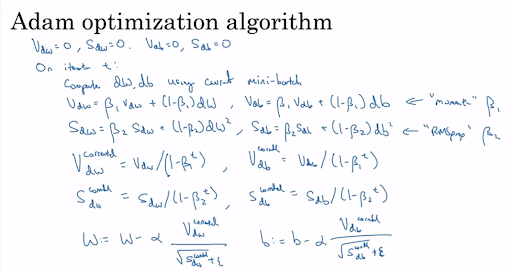 Adam optimization algorithm
V_dw = 0, S_dw = 0. V_db = 0, S_db = 0
On iteration t:
Compute dw, db using current mini-batch
V_dw = β₁ V_dw + (1-β₁) dW , V_db = β₁ V_db + (1-β₁) db ← "moment" β₁
S_dw = β₂ S_dw + (1-β₂) dW² , S_db = β₂ S_db + (1-β₂) db² ← "RMSprop" β₂
V_dw^corrected = V_dw/(1-β₁^t) , V_db^corrected = V_db/(1-β₁^t)
S_dw^corrected = S_dw/(1-β₂^t) , S_db^corrected = S_db/(1-β₂^t)
W := W - α V_dw^corrected / (√S_dw^corrected + ε) b := b - α V_db^corrected / (√S_db^corrected + ε)